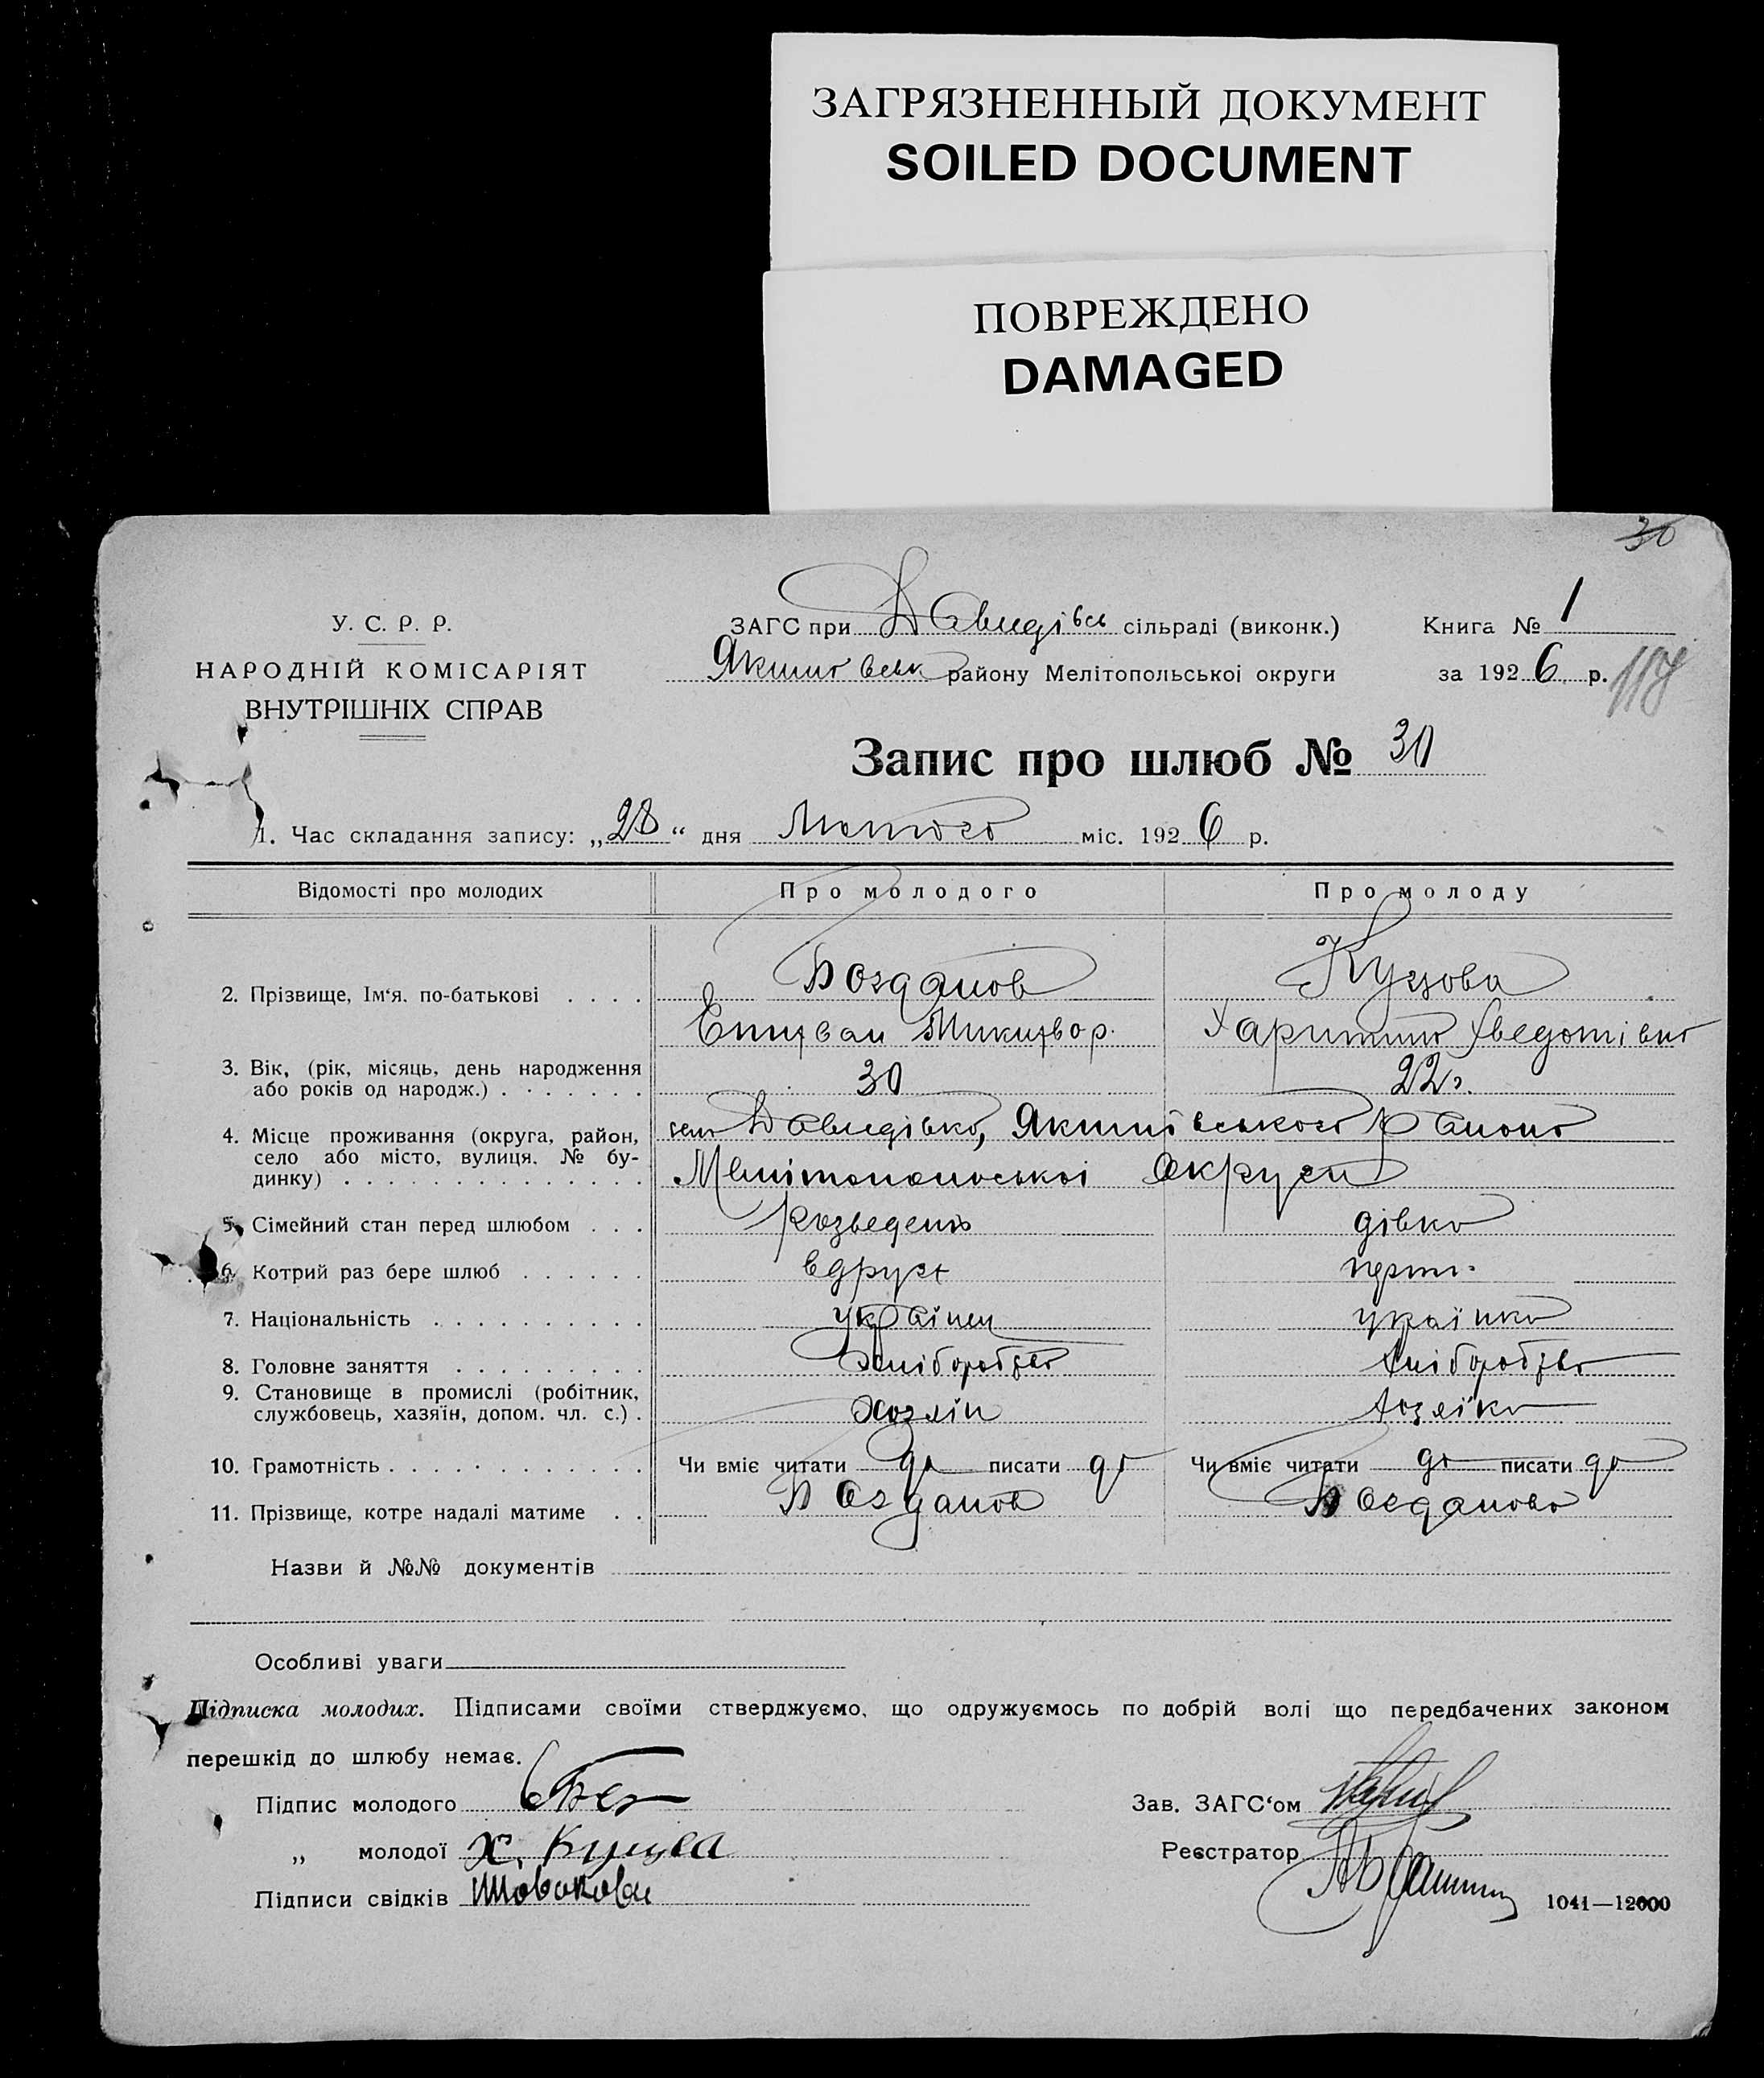 ЗАГРЯЗНЕННЫЙ ДОКУМЕНТ
SOILED DOCUMENT
ПОВРЕЖДЕНО
DAMAGED
30
У. С. Р. Р.
НАРОДНІЙ КОМІСАРІЯТ
ВНУТРІШНІХ СПРАВ
ЗАГС при Давидівсь сільраді (виконк.)
Якимівськ району Мелітопольської округи
Книга № 1
за 1926 р.
117
Запис про шлюб № 30
1. Час складання запису: „28“ дня Лютого міс. 1926 р.
Відомості про молодих Про молодого Про молоду
2. Прізвище, Ім‘я. по-батькові . . . . Богданов Куцова
Микифор. Харитина Хведотівна
3. Вік, (рік, місяць, день народження
або років од народж.) . . . . . . . 30 22 г.
4. Місце проживання (округа, район,
село або місто, вулиця. № бу-
динку) . . . . . . . . . . . . . .
село Давидівка, Якимівського Району
Мелітопольської Округи
5. Сімейний стан перед шлюбом . . . розведень дівка
6. Котрий раз бере шлюб . . . . . . вдруге перш.
7. Національність . . . . . . . . . . українец українка
8. Головне заняття . . . . . . . . . хліборобство хліборобство
9. Становище в промислі (робітник,
службовець, хазяїн, допом. чл. с.) . хозяін хозяїка
10. Грамотність . . . . . . . . . . . . Чи вміє читати да писати да Чи вміє читати да писати да
11. Прізвище, котре надалі матиме . . Богданов Богданова
Назви й №№ документів
Особливі уваги
Підписка молодих. Підписами своїми стверджуємо, що одружуємось по добрій волі що передбачених законом
перешкід до шлюбу немає.
Підпис молодого Бог
„ молодої Х. Куцева
Підписи свідків
Зав. ЗАГС‘ом
Реєстратор
1041—12000